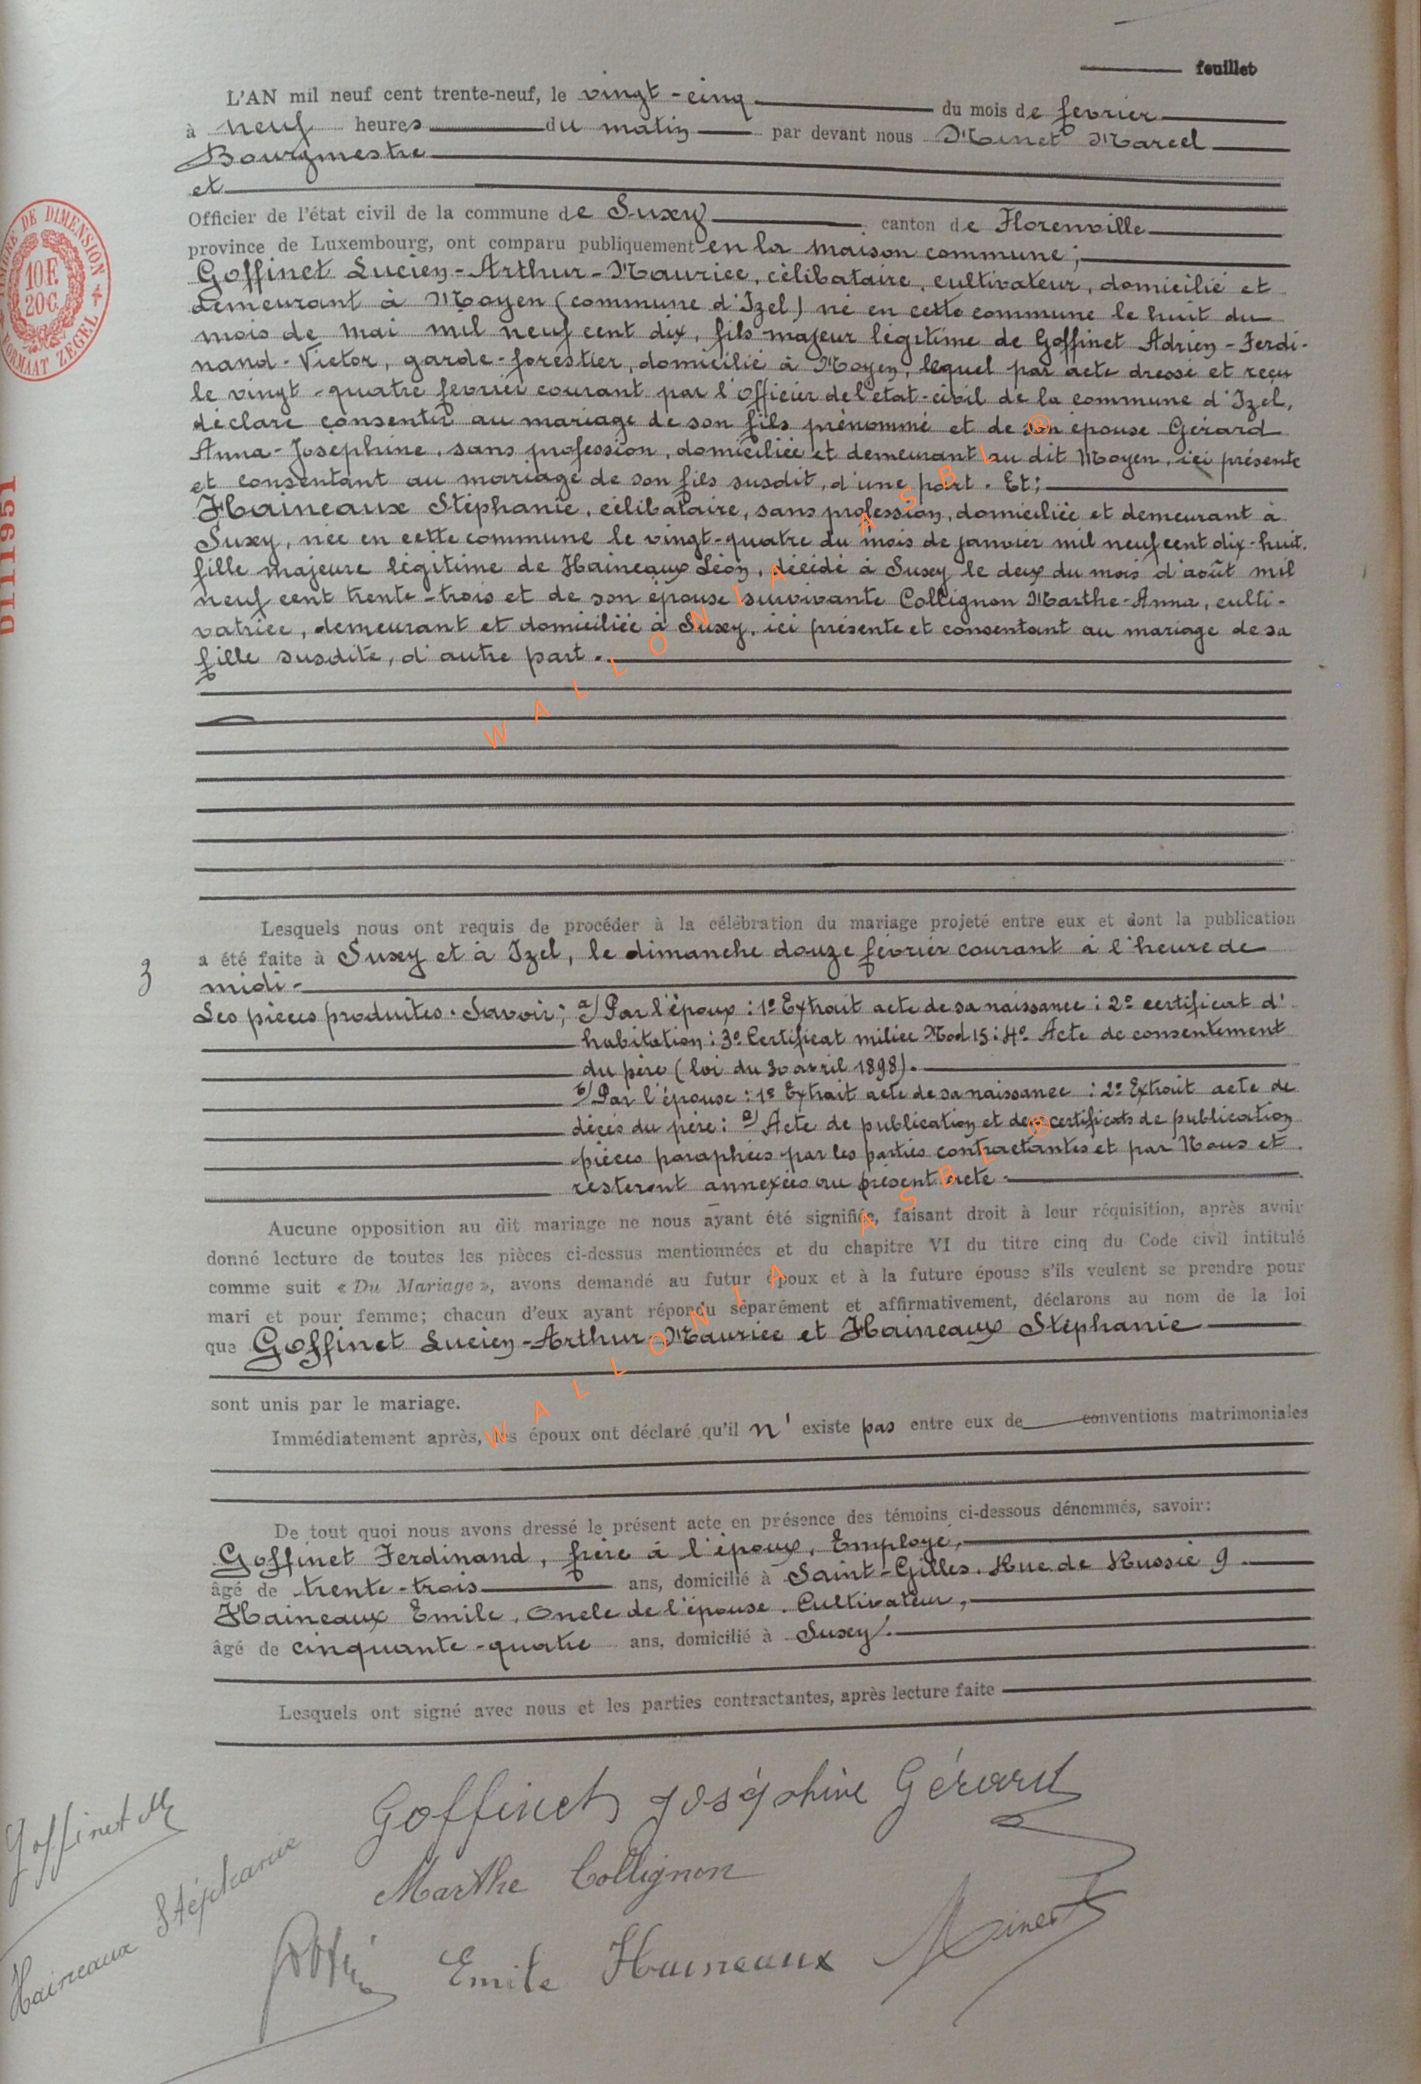 feuillet
L'AN mil neuf cent trente-neuf, le vingt-cinq du mois de février
à neuf heures du matin par devant nous Minet Marcel
Bourgmestre
et
Officier de l'état civil de la commune de Suxy canton de Florenville
province de Luxembourg, ont comparu publiquement en la maison commune;
Goffinet Lucien-Arthur-Maurice, célibataire, cultivateur, domicilié et
demeurant à Moyen (commune d'Izel) né en cette commune le huit du
mois de mai mil neuf cent dix, fils majeur légitime de Goffinet Adrien-Ferdi-
nand-Victor, garde-forestier, domicilié à Moyen, lequel par acte dressé et reçu
le vingt-quatre février courant par l'officier de l'état-civil de la commune d'Izel,
déclare consentir au mariage de son fils prénommé et de son épouse Gérard
Anna-Joséphine, sans profession, domiciliée et demeurant au dit Moyen, ici présente
et consentant au mariage de son fils susdit, d'une part. Et;
Haineaux Stéphanie, célibataire, sans profession, domiciliée et demeurant à
Suxy, née en cette commune le vingt-quatre du mois de janvier mil neuf cent dix-huit.
fille majeure légitime de Haineaux Léon, décédé à Suxy le deux du mois d'août mil
neuf cent trente-trois et de son épouse survivante Collignon Marthe-Anna, culti-
vatrice, demeurant et domiciliée à Suxy, ici présente et consentant au mariage de sa
fille susdite, d'autre part.
Lesquels nous ont requis de procéder à la célébration du mariage projeté entre eux et dont la publication
3 a été faite à Suxy et à Izel, le dimanche douze février courant à l'heure de
midi-
Les pièces produites. Savoir; a) Par l'époux : 1° Extrait acte de sa naissance : 2° certificat d'
habitation : 3° Certificat milice Mod 15 : 4° Acte de consentement
du père (loi du 30 avril 1898).
b) Par l'épouse : 1° Extrait acte de sa naissance : 2° Extrait acte de
décès du père : a) Acte de publication et des certificats de publication
pièces paraphées par les parties contractantes et par Nous et
resteront annexées au présent acte
Aucune opposition au dit mariage ne nous ayant été signifiée, faisant droit à leur réquisition, après avoir
donné lecture de toutes les pièces ci-dessus mentionnées et du chapitre VI du titre cinq du Code civil intitulé
comme suit « Du Mariage », avons demandé au futur époux et à la future épouse s'ils veulent se prendre pour
mari et pour femme; chacun d'eux ayant répondu séparément et affirmativement, déclarons au nom de la loi
que Goffinet Lucien-Arthur-Maurice et Haineaux Stéphanie
sont unis par le mariage.
Immédiatement après, les époux ont déclaré qu'il n'existe pas entre eux de conventions matrimoniales
De tout quoi nous avons dressé le présent acte en présence des témoins ci-dessous dénommés, savoir:
Goffinet Ferdinand, frère à l'époux, Employé,
âgé de trente-trois ans, domicilié à Saint-Gilles. Rue de Russie 9
Haineaux Emile, Oncle de l'épouse. Cultivateur,
âgé de cinquante-quatre ans, domicilié à Suxy.
Lesquels ont signé avec nous et les parties contractantes, après lecture faite
Goffinet Joséphine Gérard
Goffinet M
Haineaux Stéphanie
Marthe Collignon
Emile Haineaux Minet
TIMBRE DE DIMENSION
10F.
20C.
FORMAAT ZEGEL
D1111951
WALLONIA ASBL ®
WALLONIA ASBL ®